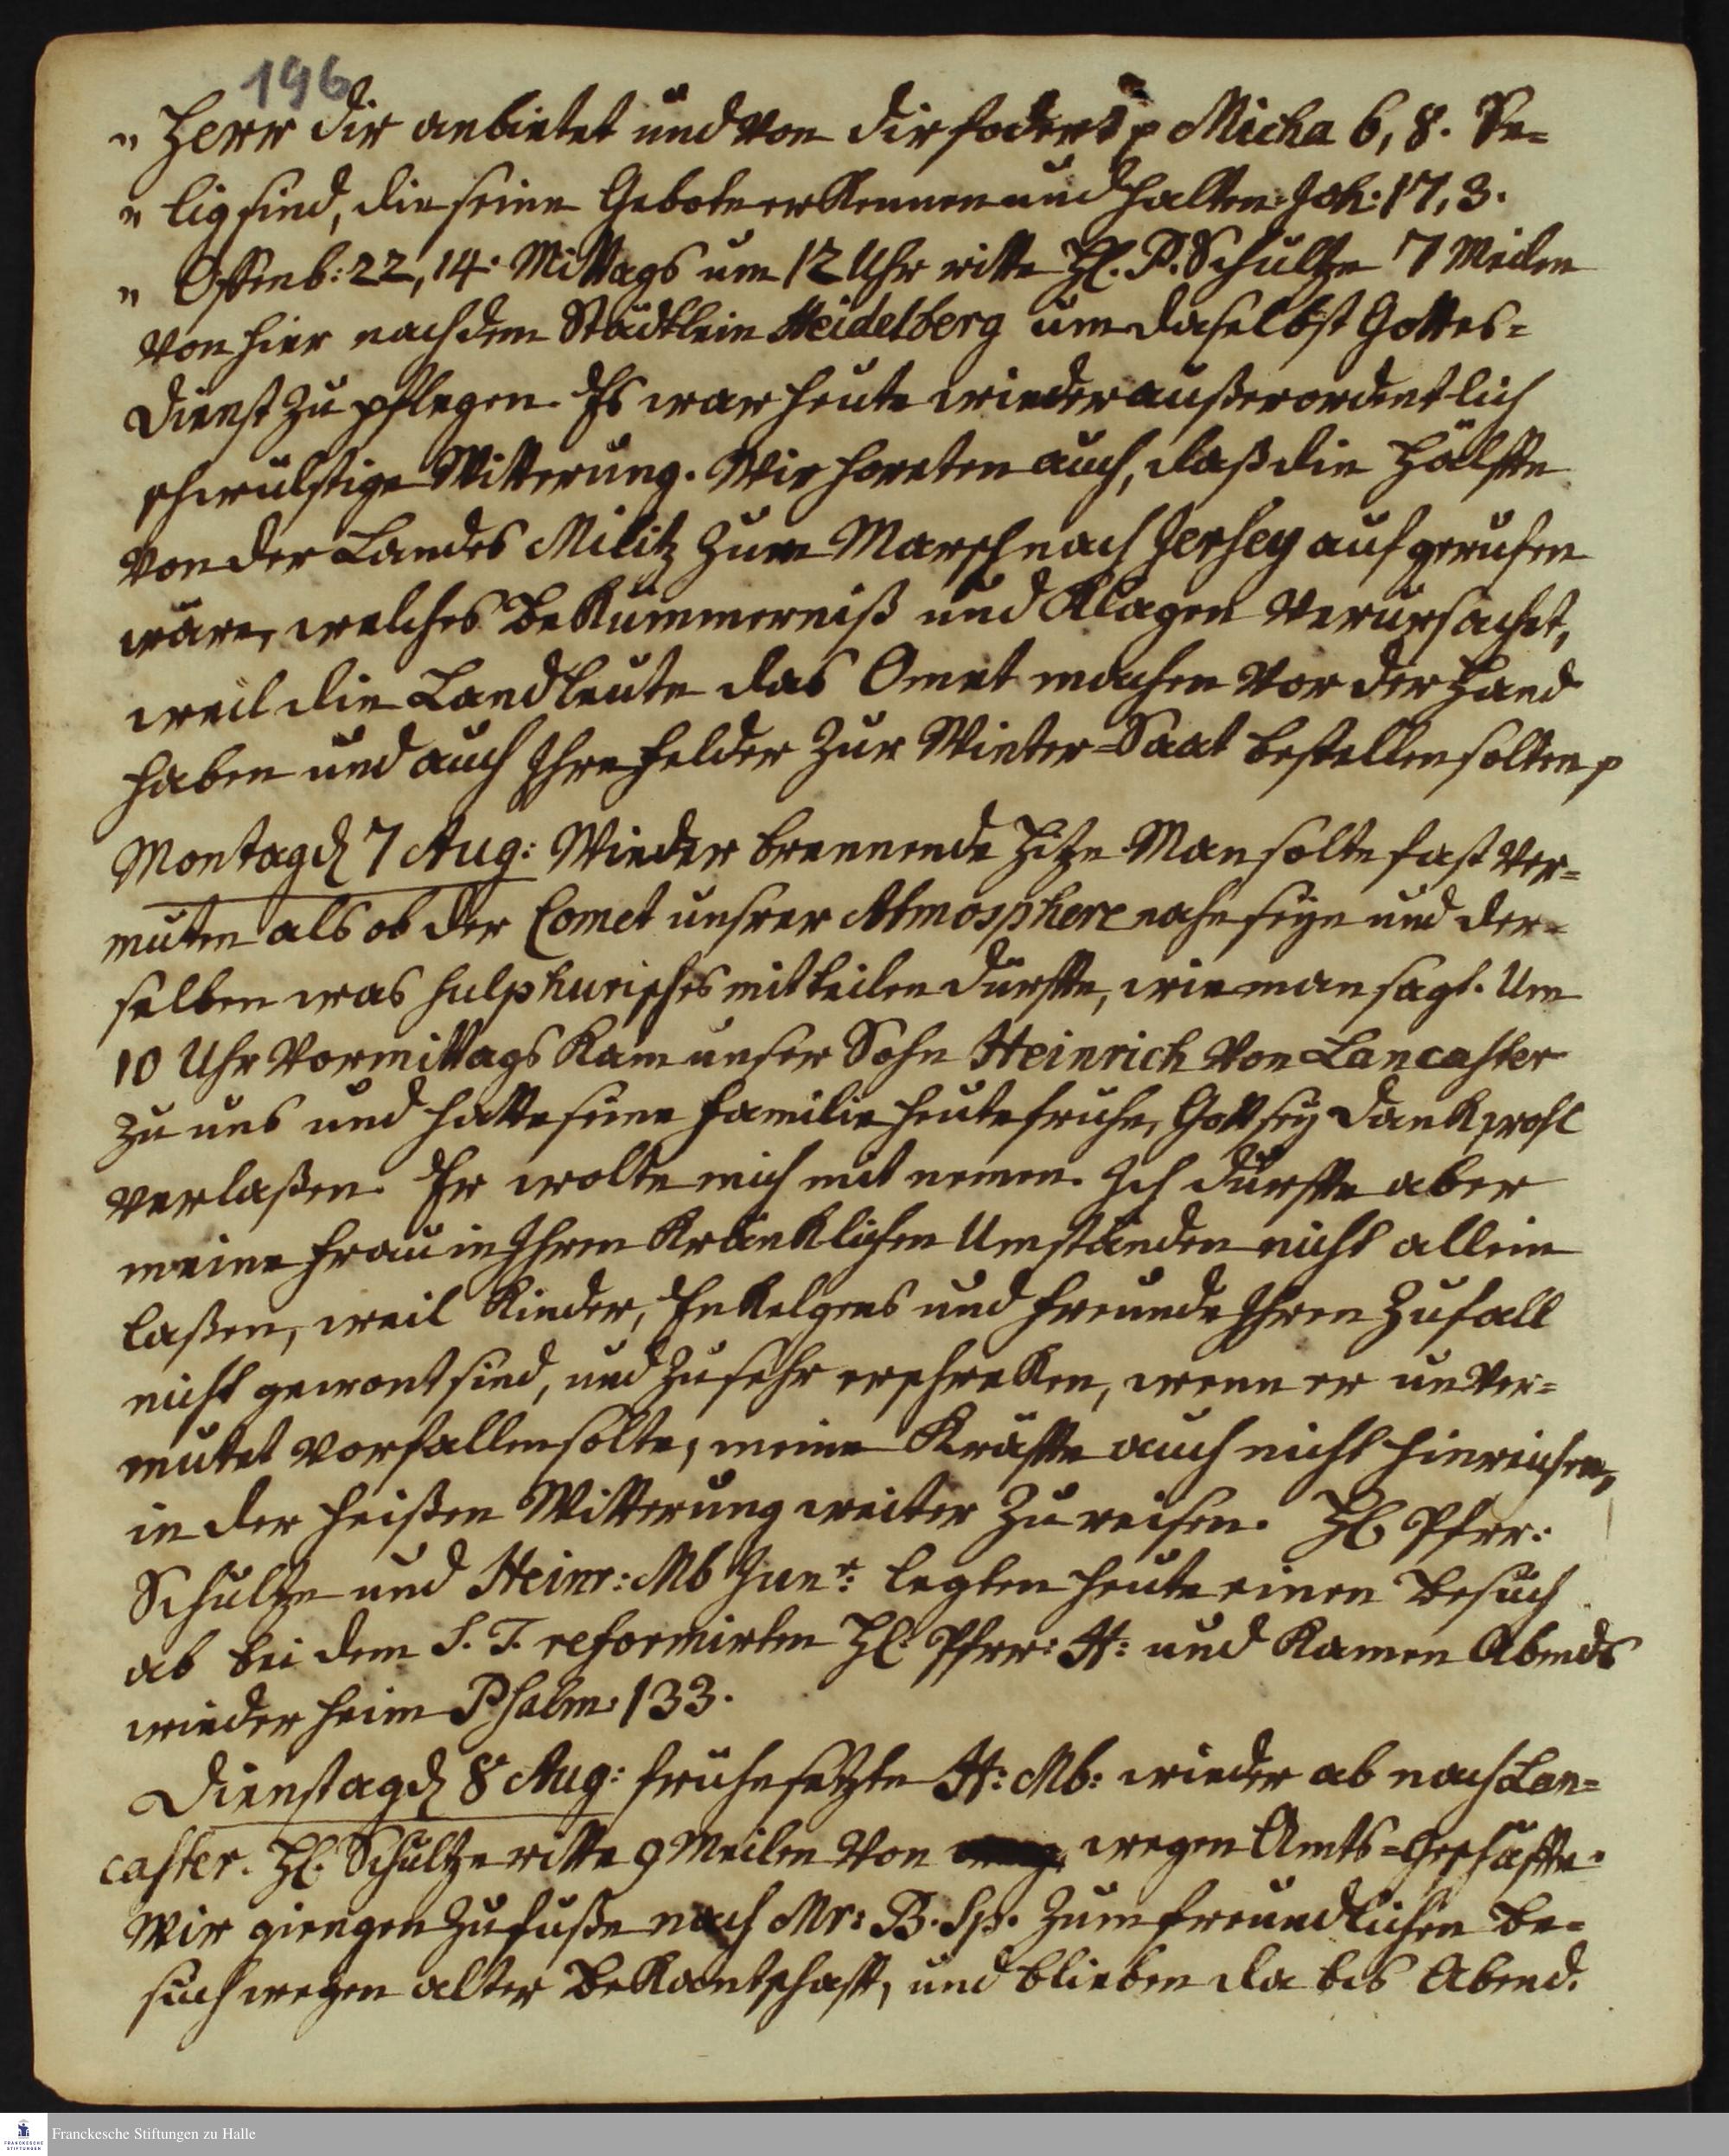 196
" Herr dir anbietet und von dir fodert p Micha 6, 8. Se=
" lig sind, die seine Gebote erkennen und halten. Joh: 17, 3.
" Offenb: 22, 14. Mittags um 12 Uhr ritte H. P. Schultze 7 Meilen
von hier nach dem Städtlein Heidelberg um daselbst Gottes=
dienst zu pflegen. Es war heute wieder außerordentlich
schwülstige Witterung. Wir horeten auch, daß die Hälfte
von der Landes Militz zum Marsch nach Jersey aufgerufen
wäre, welches Bekümmerniß und Klagen verursachet,
weil die Landleute das Omet machen vor der Hand
haben und auch Ihre Felder zur Winter=Saat bestellen solten p
Montag d 7 Aug: Wieder brennende Hitze. Man solte fast ver=
muten als ob der Comet unsrer Atmosphere nahe seÿe und der=
selben was sulphurisches mittheilen dürffte, wie man sagt. Um
10 Uhr Vormittags kam unser Sohn Heinrich von Lancaster
zu uns und hatte seine Familie heute fruhe, Gott seÿ Dank wohl
verlaßen. Er wolte mich mit nemen. Ich durffte aber
meine Frau in Ihren kränklichen Umständen nicht allein
laßen, weil Kinder, Enkelgens und Freunde Ihren Zufall
nicht gewont sind, und zu sehr erschreken, wenn er unver=
mutet vorfallen solte, meine Kräffte auch nicht hinreichen,
in der heißen Witterung weiter zu reisen. H. Pfrr:
Schultze und Heinr: Mb Junr: legten heute einen Besuch
ab bei dem S. T. reformirten H. Pfrr: H: und kamen Abends
wieder heim Psalm: 133.
Dienstag d 8 Aug: fruhe setzte H: Mb: wieder ab nach Lan=
caster. H. Schultze ritte 9 Meilen von wegen Amts=Geschäffte.
Wir giengen zu fuße nach Mr: B. Sp. zum freundlichen Be=
such wegen alter Bekantschafft, und blieben da bis Abend.
Franckesche Stiftungen zu Halle